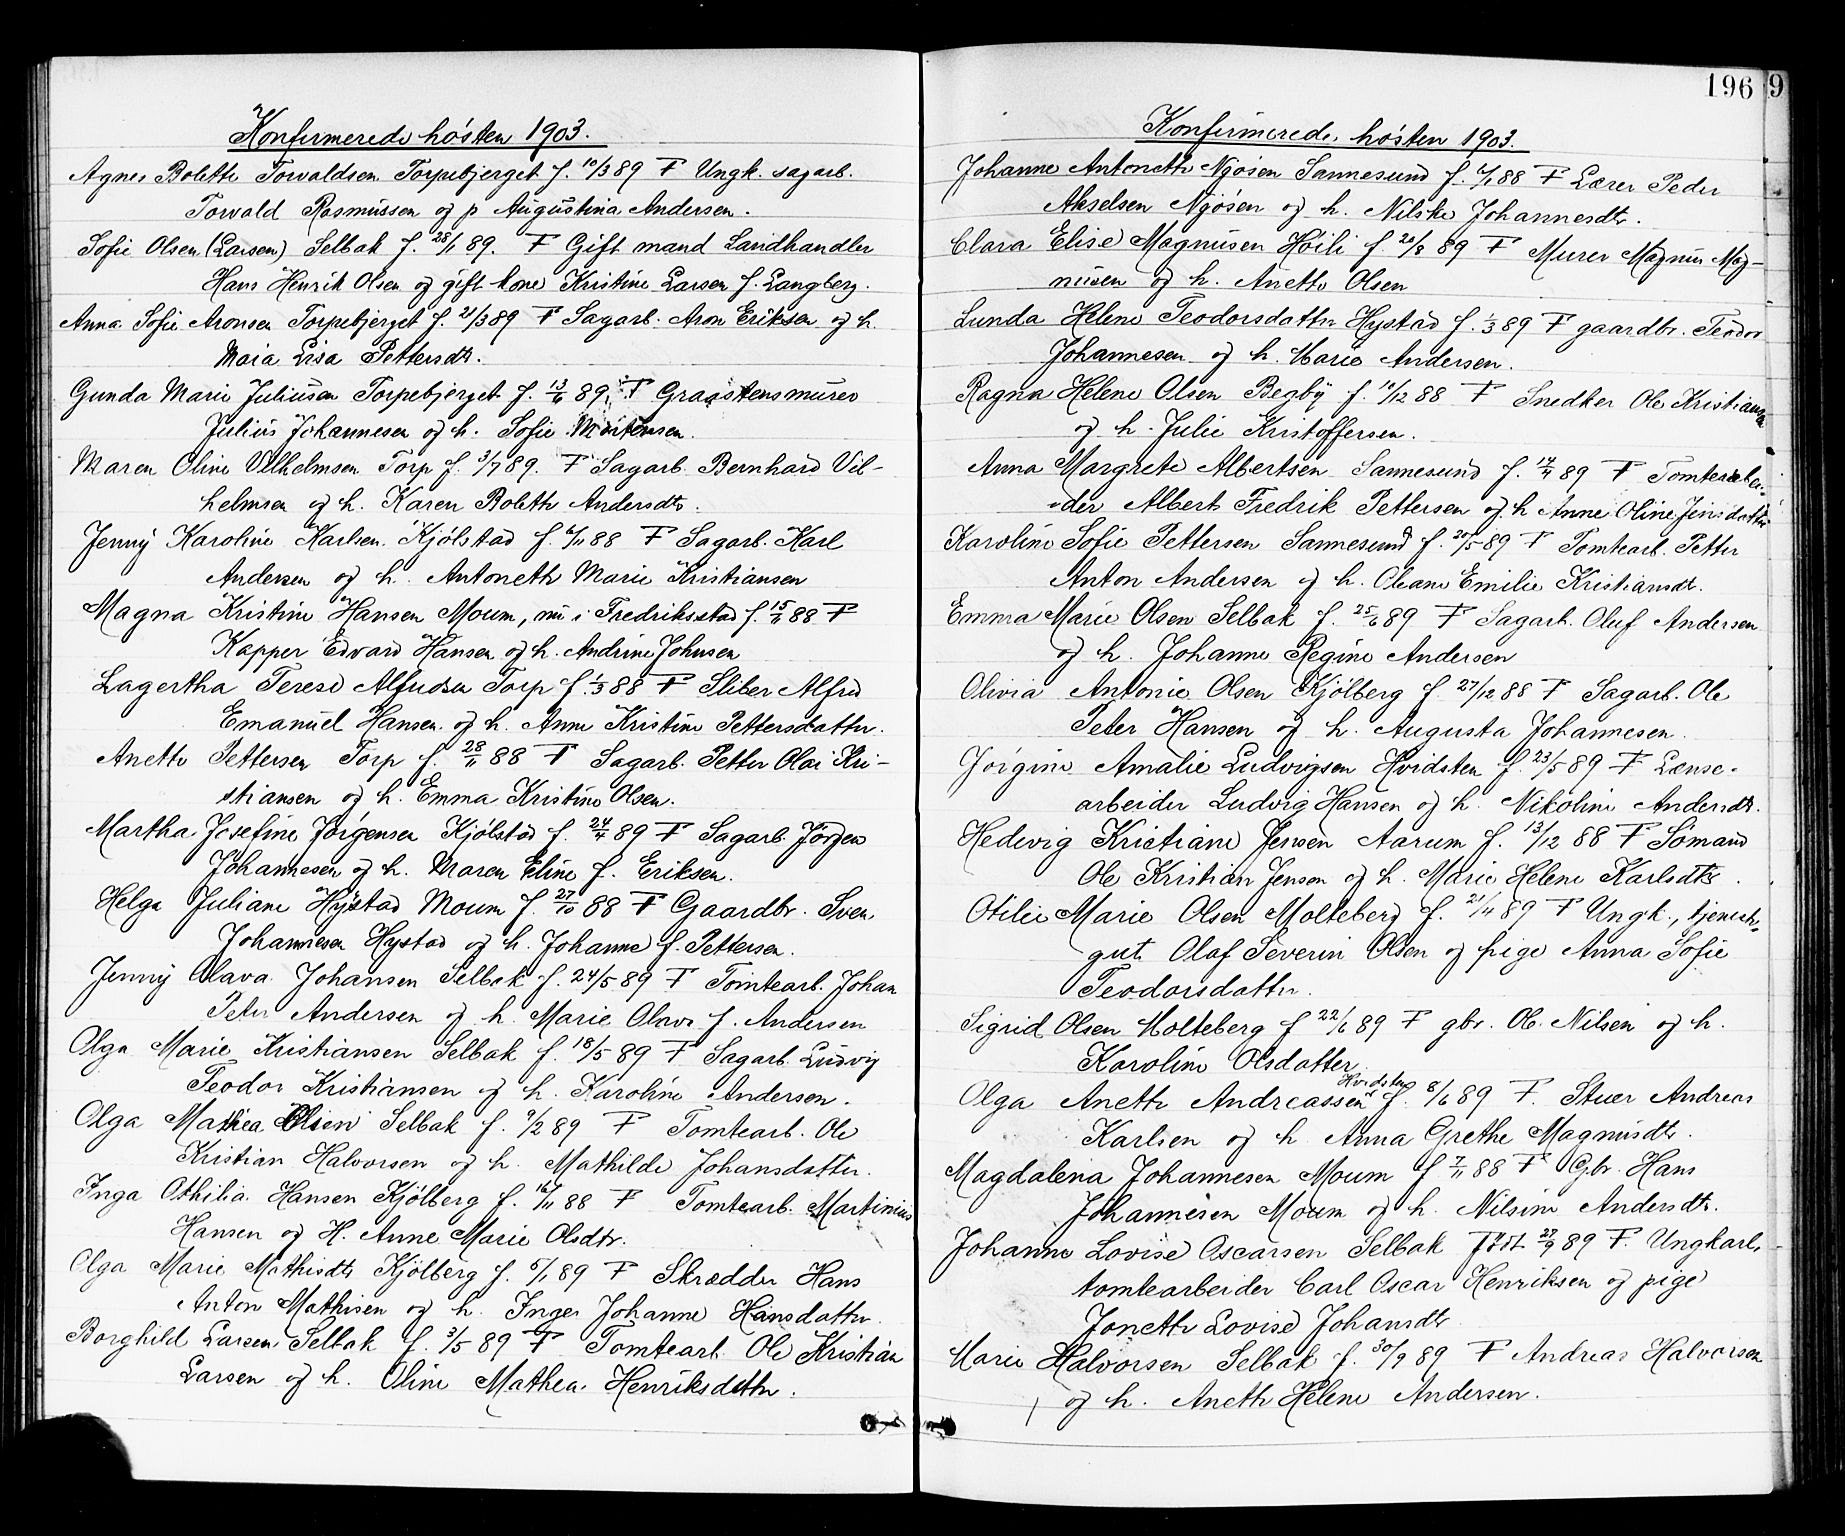 Konfirmerede hósten 1903.
Agnes Bolette Torvaldsen Torpebjerget f. 10/3 89 F Ungk. sagarb.
Torvald Rasmussen og p Augustina Andersen.
Sofie Olsen (Larsen) Selbak f. 28/1 89. F Gift mand Landhandler
Hans Henrik Olsen og gift kone Kristine Larsen f. Langberg.
Anna Sofie Aronsen Torpebjerget f. 21/3 89 F Sagarb. Aron Eriksen og h.
Maia Lisa Pettersdtr.
Gunda Marie Juliusen Torpebjerget f. 13/6 89. F Graastensmurer
Julius Johannesen og h. Sofie Mortensen.
Maren Oline Vilhelmsen Torp f. 3/7 89. F Sagarb. Bernhard Vil-
helmsen og h. Karen Bolette Andersdtr.
Jenny Karoline Karlsen Kjólstad f. 6/11 88 F Sagarb. Karl
Andersen og h. Antonette Marie Kristiansen
Magna Kristine Hansen Moum, nu i Fredriksstad f. 15/11 88 F
Kapper Edvard Hansen og h. Andrine Johnsen
Lagertha Terese Alfredsen Torp f. 1/3 88 F Sliber Alfred
Emanuel Hansen og h. Anne Kristine Pettersdatter.
Anette Pettersen Torp f. 28/11 88 F Sagarb. Petter Olai Kri-
stiansen og h. Emma Kristine Olsen.
Martha Josefine Jörgensen Kjólstad f. 24/4 89 F Sagarb. Jörgen
Johannesen og h. Maren Eline f. Eriksen.
Helga Juliane Hystad Moum f. 27/10 88 F Gaardbr. Sven
Johannesen Hystad og h. Johanne f. Pettersen.
Jenny Olava Johansen Selbak f. 24/5 89 F Tomtearb. Johan
Peter Andersen og h. Marie Olava f. Andersen
Olga Marie Kristiansen Selbak f. 18/5 89 F Sagarb. Ludvig
Teodor Kristiansen og h. Karoline Andersen.
Olga Mathea Olsen Selbak f. 9/2 89 F Tomtearb. Ole
Kristian Halvorsen og h. Mathilde Johansdatter.
Inga Othilia Hansen Kjölberg f. 16/11 88 F Tomtearb. Martinius
Hansen og H. Anne Marie Olsdtr.
Olga Marie Mathisdtr Kjölberg f. 5/1 89 F Skrædder Hans
Anton Mathisen og h. Inger Johanne Hansdatter.
Borghild Larsen Selbak f. 3/5 89 F Tomtearb. Ole Kristian
Larsen og h. Oline Mathea Henriksdatter.
196 9
Konfirmerede hósten 1903.
Johanne Antonette Nyósen Sannesund f. 88 F Lærer Peder
Akselsen Nyósen og h. Nilske Johannesdtr.
Clara Elise Magnusen Höili f. 20/8 89 F Murer Magnus Mag-
nusen og h. Anette Olsen
Lunda Helene Teodorsdatter Hystad f. 1/3 89 F gaardbr. Teodor
Johannesen og h. Marie Andersen.
Ragna Helene Olsen Begby f. 10/12 88 F Snedker Ole Kristiansen
og h. Julie Kristoffersen.
Anna Margrete Albertsen Sannesund f. 89 F Tomtearbei-
der Albert Fredrik Pettersen og h Anne Oline Jensdatter
Karoline Sofie Pettersen Sannesund f. 20/5 89 F Tomtearb. Petter
Anton Andersen og h. Oleane Emilie Kristiansdt.
Emma Marie Olsen Selbak f. 25/6 89 F Sagarb. Oluf Andersen
og h. Johanne Regine Andersen
Olivia Antonie Olsen Kjölberg f. 27/12 88 F Sagarb. Ole
Peter Hansen og h. Augusta Johannesen.
Jörgine Amalie Ludvigsen Hvidsten f. 23/5 89 F Lænse-
arbeider Ludvig Hansen og h. Nikoline Andersdt.
Hedevig Kristiane Jensen Aarum f. 13/12 88 F Sömand
Ole Kristian Jensen og h. Marie Helene Karlsdtr.
Otilie Marie Olsen Molteberg f. 21/4 89 F Ungk., tjeneste-
gut Olaf Severin Olsen og pige Anna Sofie
Teodorsdatter.
Sigrid Olsen Molteberg f 22/6 89 F gbr. Ole Nilsen og h.
Karoline Olsdatter
Olga Anette Andreassen Hvidsten f. 8/6 89 F. Stuer Andreas
Karlsen og h. Anna Grethe Magnusdtr.
Magdalena Johannesen Moum f. 7/11 88 F Gbr. Hans
Johannesen Moum og h. Nilsine Andersdtr.
Johanne Lovise Oscarsen Selbak född 27/9 89 F. Ungkarl,
tomtearbeider Carl Oscar Henriksen og pige
Jonette Lovise Johansdtr
Marie Halvorsen Selbak f. 30/9 89 F Andreas Halvorsen
og h. Anette Helene Andersen.